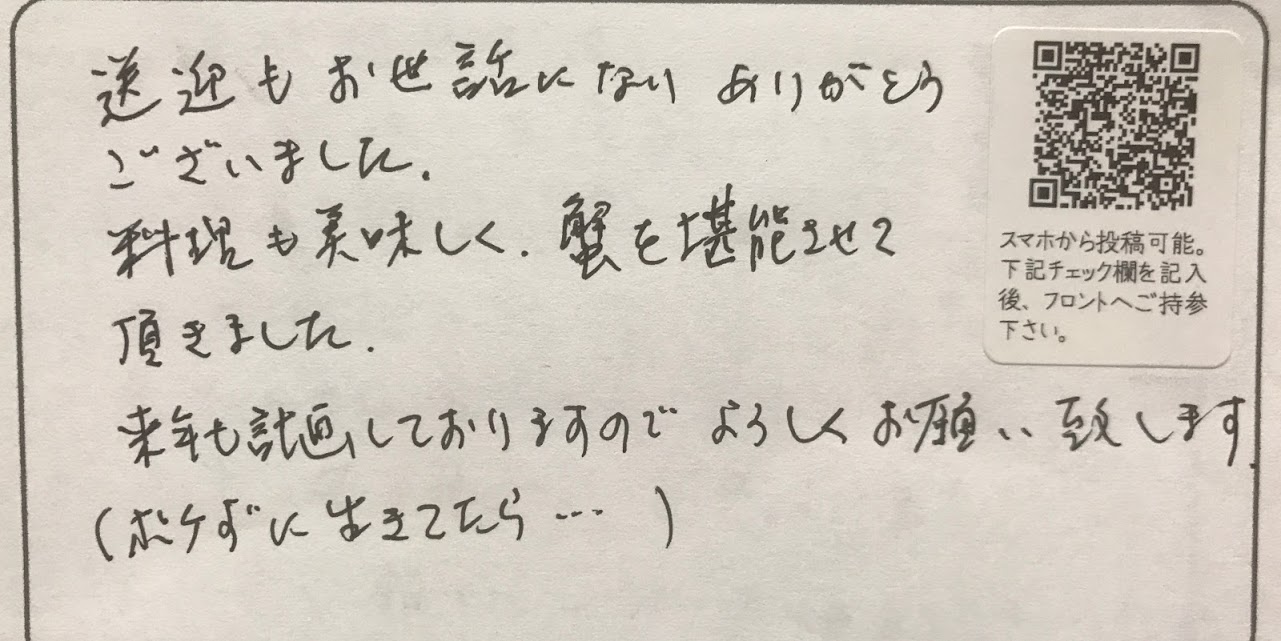 送迎もお世話になりありがとう
ございました.
料理も美味しく.蟹を堪能させて
頂きました.
来年も計画しておりますのでよろしくお願い致します.
(ボケずに生きてたら…)
スマホから投稿可能。
下記チェック欄を記入
後、フロントへご持参
下さい。